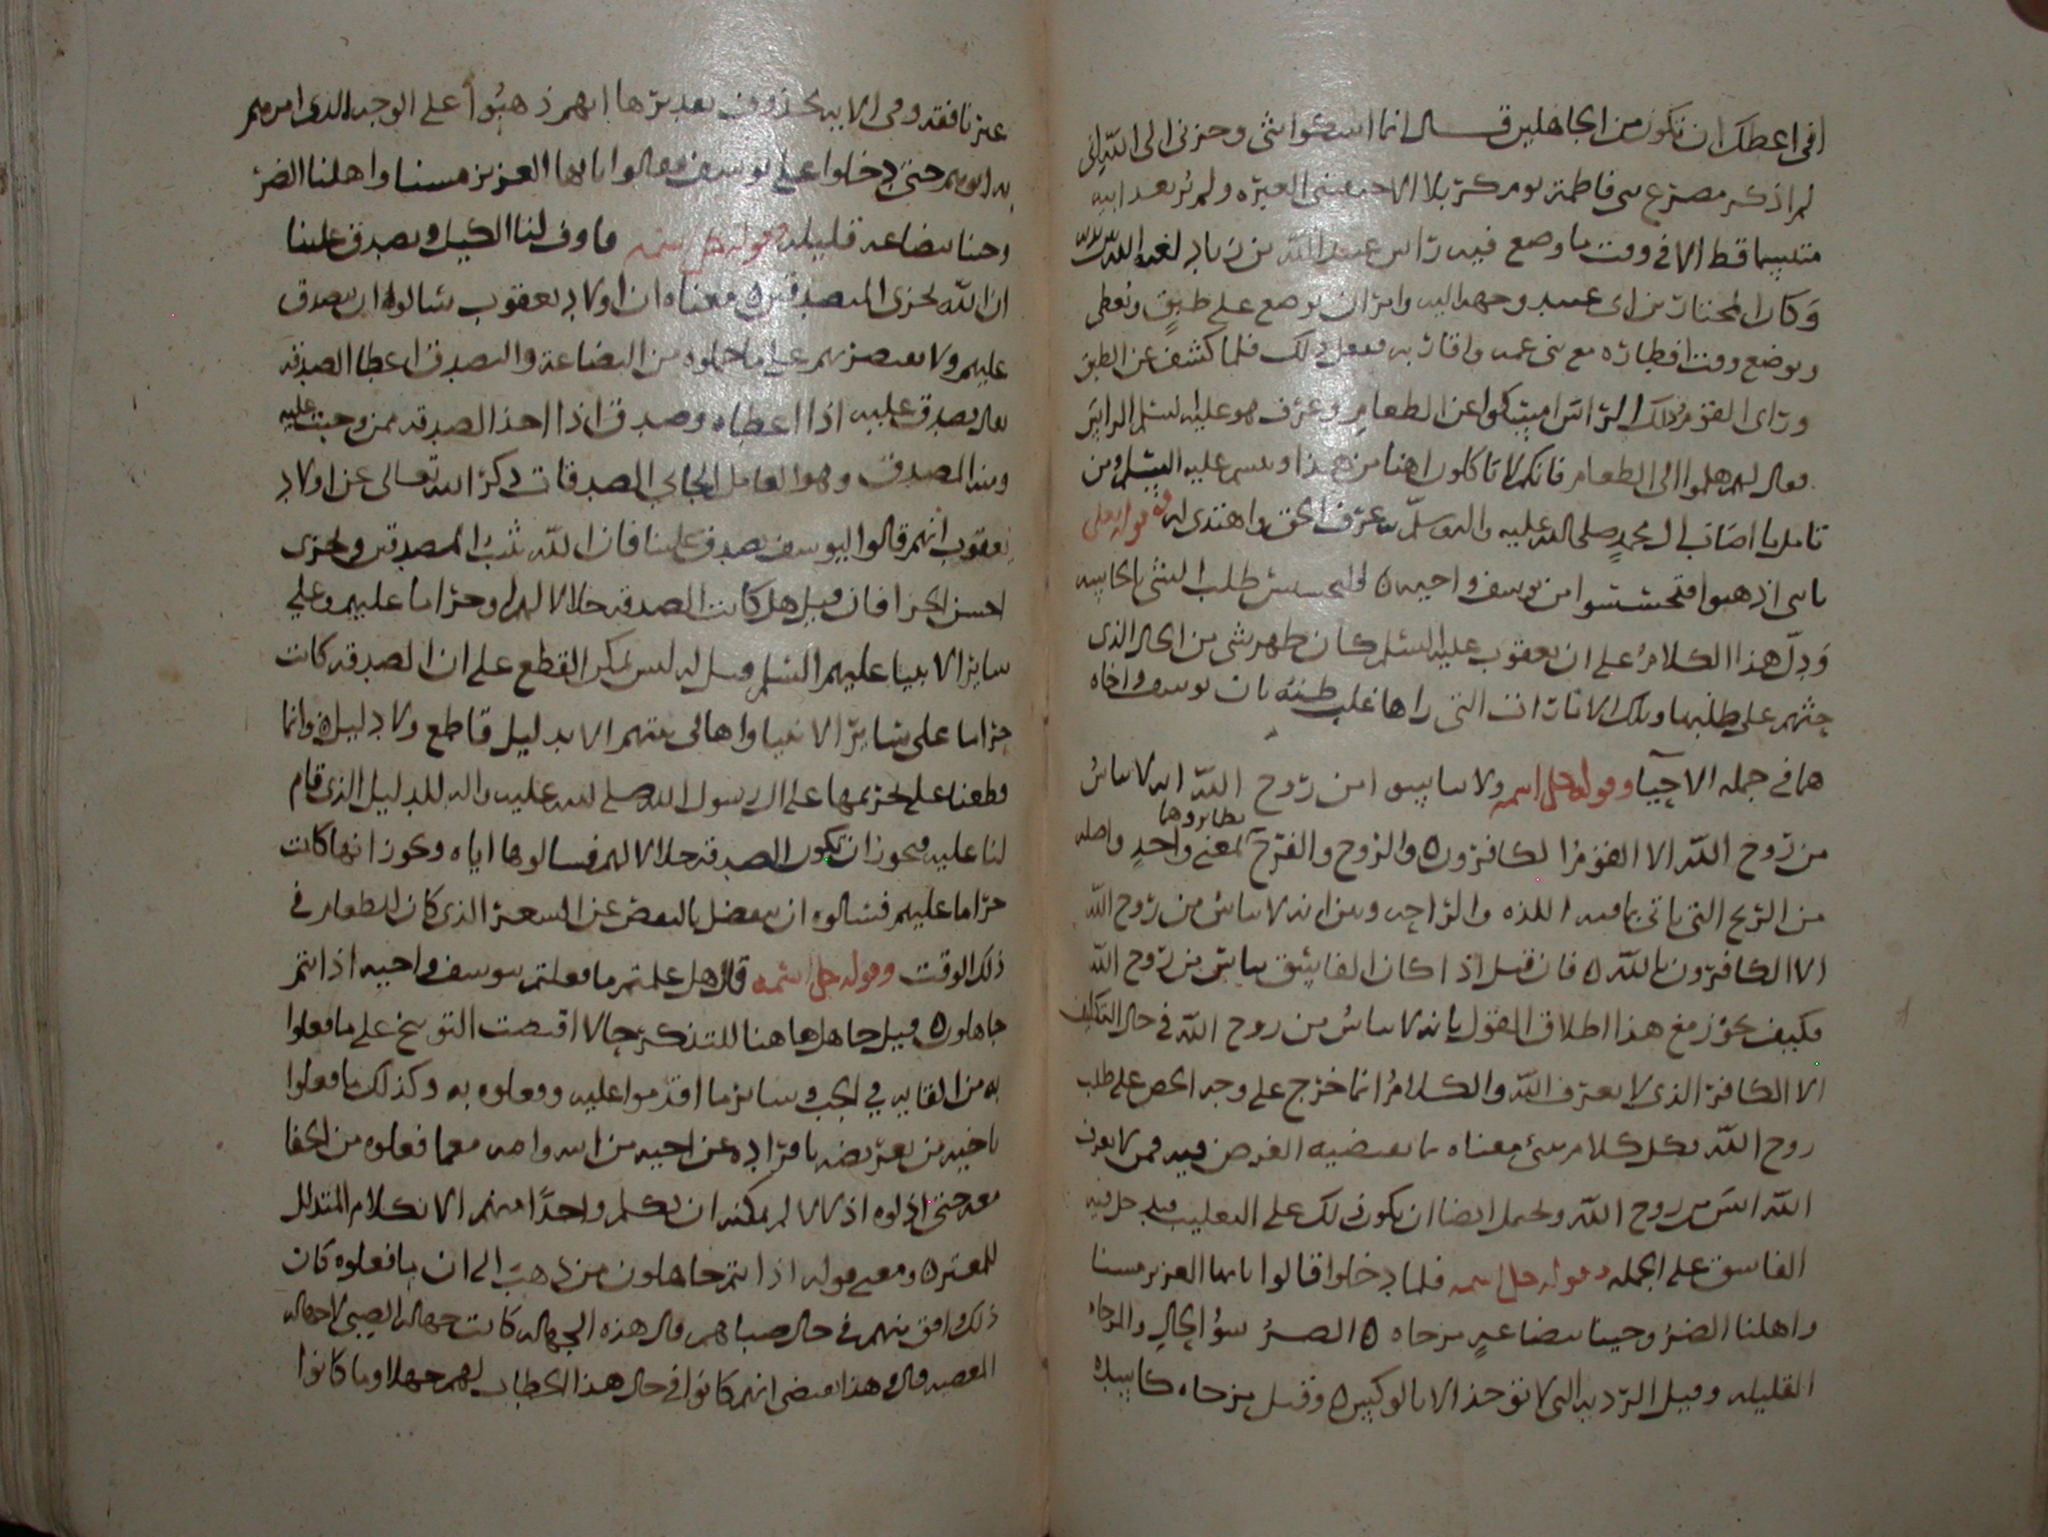 اني اعظك ان تكون من الجاهلين قال انما اشكوا بثي وحزني الى الله اني
لم اذكر مصرع بني فاطمة يوم كربلا الا خنقتني العبرة ولم ير بعد ابيه
متبسما قط الا في وقت ما وضع فيه راس عبيد الله بن زياد لعنه الله
وكان المختار بن ابي عبيد وجهه اليه وامر ان يوضع على طبق ويغطى
ويوضع وقت افطاره مع بني عمه واقاربه ففعل ذلك فلما كشف عن الطبق
وراى القوم ذلك الراس امسكوا عن الطعام وعرف هو عليه السلم الراس
فقال لهم هلموا الى الطعام فانكم لا تاكلون اهنا من هذا وتبسم عليه السلم ومن
تامل ما اصاب ال محمد صلى الله عليه واله وسلم عرف الحق واهتدى اليه قوله تعلى
يابني اذهبوا فتحسسوا من يوسف واخيه التحسس طلب الشي بالحاسه
ودل هذا الكلام على ان يعقوب عليه السلم كان ظهر شي من الحال الذى
حثهم على طلبها وتلك الامارات التي راها غلب ظنه بان يوسف واخاه
هما في جمله الاحيا وقوله جل اسمه ولا تايسوا من روح الله انه لا يياس
من روح الله الا القوم الكافرون والروح والفرج نظايروهما لمعنى واحد واصله
من الريح التي تاتي بما فيه اللذه والراحه وبين انه لا يياس من روح الله
الا الكافرون بالله فان قيل اذا كان الفاسق يياس من روح الله
فكيف يجوز مع هذا اطلاق القول بانه لا يياس من روح الله في حال التكليف
الا الكافر الذى لا يعرف الله والكلام انما خرج على وجه الحض على طلب
روح الله بكل كلام ينبئ معناه ما يقتضيه الغرض فيه فمن لا يعرف
الله ايس من روح الله ويحتمل ايضا ان يكون ذلك على التغليب فيدخل فيه
الفاسق على الجمله وقوله جل اسمه فلما دخلوا قالوا يايها العزيز مسنا
واهلنا الضر وجينا ببضاعةٍ مزجاه الضر سؤ الحال والمزجاه
القليله وقيل الرديه التي لا توخذ الا بالوكس وقيل مزجاه كاسده
غير نافقه وفي الايه محذوف تقديرها انهم ذهبوا على الوجه الذى امرهم
به ابوهم حتى دخلوا على يوسف فقالوا يايها العزيز مسنا واهلنا الضر
وجينا ببضاعه قليله وقوله جل اسمه فاوف لنا الكيل وتصدق علينا
ان الله يجزى المتصدقين معناه ان اولاد يعقوب سالوه ان يتصدق
عليهم ولا يقتصر بهم على ما حملوه من البضاعة والتصدق اعطا الصدقه
يقال تصدق عليه اذا اعطاه وصدق اذا اخذ الصدقه ممن وجبت عليه
ومنه المصدق وهو العامل الجابي الصدقات ذكر الله تعالى عن اولاد
يعقوب انهم قالوا ليوسف تصدق علينا فان الله يثيب المتصدقين ويجزى
احسن الجزا فان قيل هل كانت الصدقه حلالا لهم او حراما عليهم وعلى
ساير الانبيا عليهم السلم قيل له ليس يمكن القطع على ان الصدقه كانت
حراما على ساير الانبيا واهالى بيتهم الا بدليل قاطع ولا دليل وانما
قطعنا على تحريمها على ال رسول الله صلى الله عليه واله للدليل الذى قام
لنا عليه فيجوز ان تكون الصدقه حلالا لهم فسالوها اياه ويجوز انها كانت
حراما عليهم فسالوه ان يتفضل بالنقص عن السعر الذى كان للطعام في
ذلك الوقت وقوله جل اسمه قال هل علمتم ما فعلتم بيوسف واخيه اذ انتم
جاهلون قيل جا هل ها هنا للتذكير بحال اقتضت التوبيخ على ما فعلوا
به من القايه في الجب وساير ما اقدموا عليه وفعلوه به وكذلك ما فعلوا
باخيه من تعريضه بافراده عن اخيه من ابيه وامه معما فعلوه من الجفا
معه حتى اذلوه اذلالا لم يمكنه ان يكلم واحدًا منهم الا بكلام المتذلل
للمعتز ومعنى قوله اذ انتم جاهلون من ذهب الى ان ما فعلوه كان
ذلك واقع منهم في حال صباهم قال هذه الجهاله كانت جهاله الصبى لا جهاله
المعصيه قال وهذا يقتضى انهم كانوا في حال هذا الخطاب لهم جهلا وما كانوا